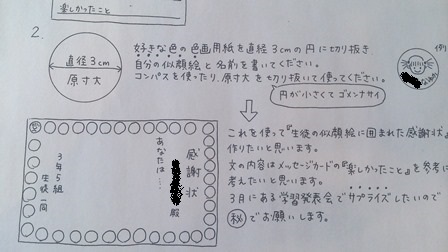 楽しかったこと
2.
直径3cm
原寸大
好きな色の色画用紙を直径3cmの円に切り抜き
自分の似顔絵と名前を書いてください。
コンパスを使ったり、原寸大を切り抜いて使ってください。
円が小さくてゴメンナサイ
例)
これを使って『生徒の似顔絵に囲まれた感謝状』
作りたいと思います。
文の内容はメッセージカードの『楽しかったこと』を参考に
考えたいと思います。
3月にある学習発表会でサプライズしたいので
㊙でお願いします。
感謝状
殿
あなたは…
3年5組
生徒一同